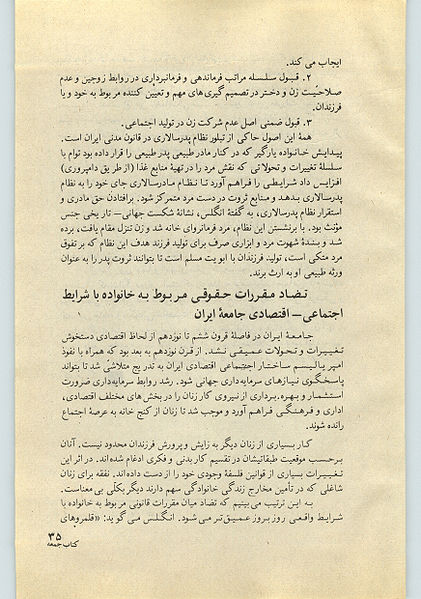 ایجاب می کند.
۲. قبول سلسله مراتب فرماندهی و فرمانبرداری در روابط زوجین و عدم
صلاحیت زن و دختر در تصمیم گیری های مهم و تعیین کننده مربوط به خود و یا
فرزندان.
۳. قبول ضمنی اصل عدم شرکت زن در تولید اجتماعی.
همهٔ این اصول حاکی از تبلور نظام پدرسالاری در قانون مدنی ایران است.
پیدایش خانواده یارگیر که در کنار مادر طبیعی پدر طبیعی را قرار داده بود توام با
سلسلهٔ تغییرات و تحولاتی که نقش مرد را در تهیهٔ منابع غذا (از طریق دامپروری)
افزایش داد شرایطی را فراهم آورد تا نظام مادرسالاری جای خود را به نظام
پدرسالاری بدهد و منابع ثروت در دست مرد متمرکز شود. برافتادن حق مادری و
استقرار نظام پدرسالاری، به گفتهٔ انگلس، نشانهٔ شکست جهانی – تاریخی جنس
مؤنث بود. با برنشستن این نظام، مرد فرمانروای خانه شد و زن تنزل مقام یافت، برده
شد و بندهٔ شهوت مرد و ابزاری صرف برای تولید فرزند هدف این نظام که بر تفوق
مرد متکی است، تولید فرزندان با ابویت مسلم است تا بتوانند ثروت پدر را به عنوان
ورثه طبیعی او به ارث برند.
تضاد مقررات حقوقی مربوط به خانواده با شرایط
اجتماعی – اقتصادی جامعهٔ ایران
جامعهٔ ایران در فاصلهٔ قرون ششم تا نوزدهم از لحاظ اقتصادی دستخوش
تغییرات و تحولات عمیقی نشد. از قرن نوزدهم به بعد بود که همراه با نفوذ
امپریالیسم ساختار اجتماعی اقتصادی ایران به تدریج متلاشی شد تا بتواند
پاسخگوی نیازهای سرمایه‌داری جهانی شود. رشد روابط سرمایه‌داری ضرورت
استثمار و بهره‌برداری از نیروی کار زنان را در بخش های مختلف اقتصادی،
اداری و فرهنگی فراهم آورد و موجب شد تا زنان از کنج خانه به عرصهٔ اجتماع
رانده شوند.
کار بسیاری از زنان دیگر به زایش و پرورش فرزندان محدود نیست. آنان
برحسب موقعیت طبقاتیشان در تقسیم کار بدنی و فکری ادغام شده‌اند. در اثر این
تغییرات بسیاری از قوانین فلسفهٔ وجودی خود را از دست داده‌اند. نفقه برای زنان
شاغلی که در تأمین مخارج زندگی خانوادگی سهم دارند دیگر بکلّی بی معناست.
به این ترتیب می بینیم که تضاد میان مقررات قانونی مربوط به خانواده با
شرایط واقعی روز بروز عمیق تر می شود. انگلس می گوید: «قلمروهای
۳۵
کتاب جمعه